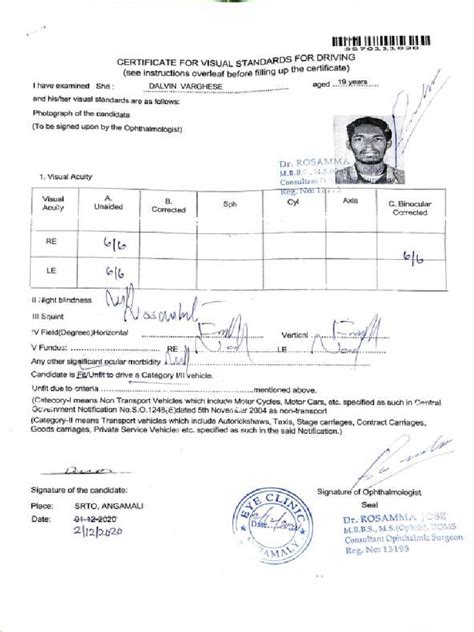 CERTIFICATE FOR VISUAL STANDARDS FOR DRIVING
(see instructions overleaf before filling up the certificate)
I have examined Shri : DALVIN VARGHESE aged 19 years
and his/her visual standards are as follows:
Photograph of the candidate
(To be signed upon by the Ophthalmologist)
Dr. ROSAMMA
M.B.B.S., M.S
Consultant
Reg. No: 13193
1. Visual Acuity
Visual Acuity A. Unaided B. Corrected Sph Cyl Axis C. Binocular Corrected
RE 6/6
6/6
LE 6/6
II Night blindness
III Squint
V Field(Degrees)Horizontal Vertical
V Fundus: RE LE
Any other significant ocular morbidity
Candidate is Fit/Unfit to drive a Category I/II vehicle.
Unfit due to criteria mentioned above.
(Category-I means Non Transport Vehicles which include Motor Cycles, Motor Cars, etc. specified as such in Central
Government Notification No.S.O.1248(E)dated 5th November 2004 as non-transport
(Category-II means Transport vehicles which include Autorickshaws, Taxis, Stage carriages, Contract Carriages,
Goods carriages, Private Service Vehicles etc. specified as such in the said Notification.)
Signature of the candidate: Signature of Ophthalmologist
Seal
Place: SRTO, ANGAMALI
Date: 01-12-2020
2/12/2020
EYE CLINIC
Date
ANGAMALY
Dr. ROSAMMA JOSE
M.B.B.S., M.S.(Ophth), DOMS
Consultant Ophthalmic Surgeon
Reg. No: 13193